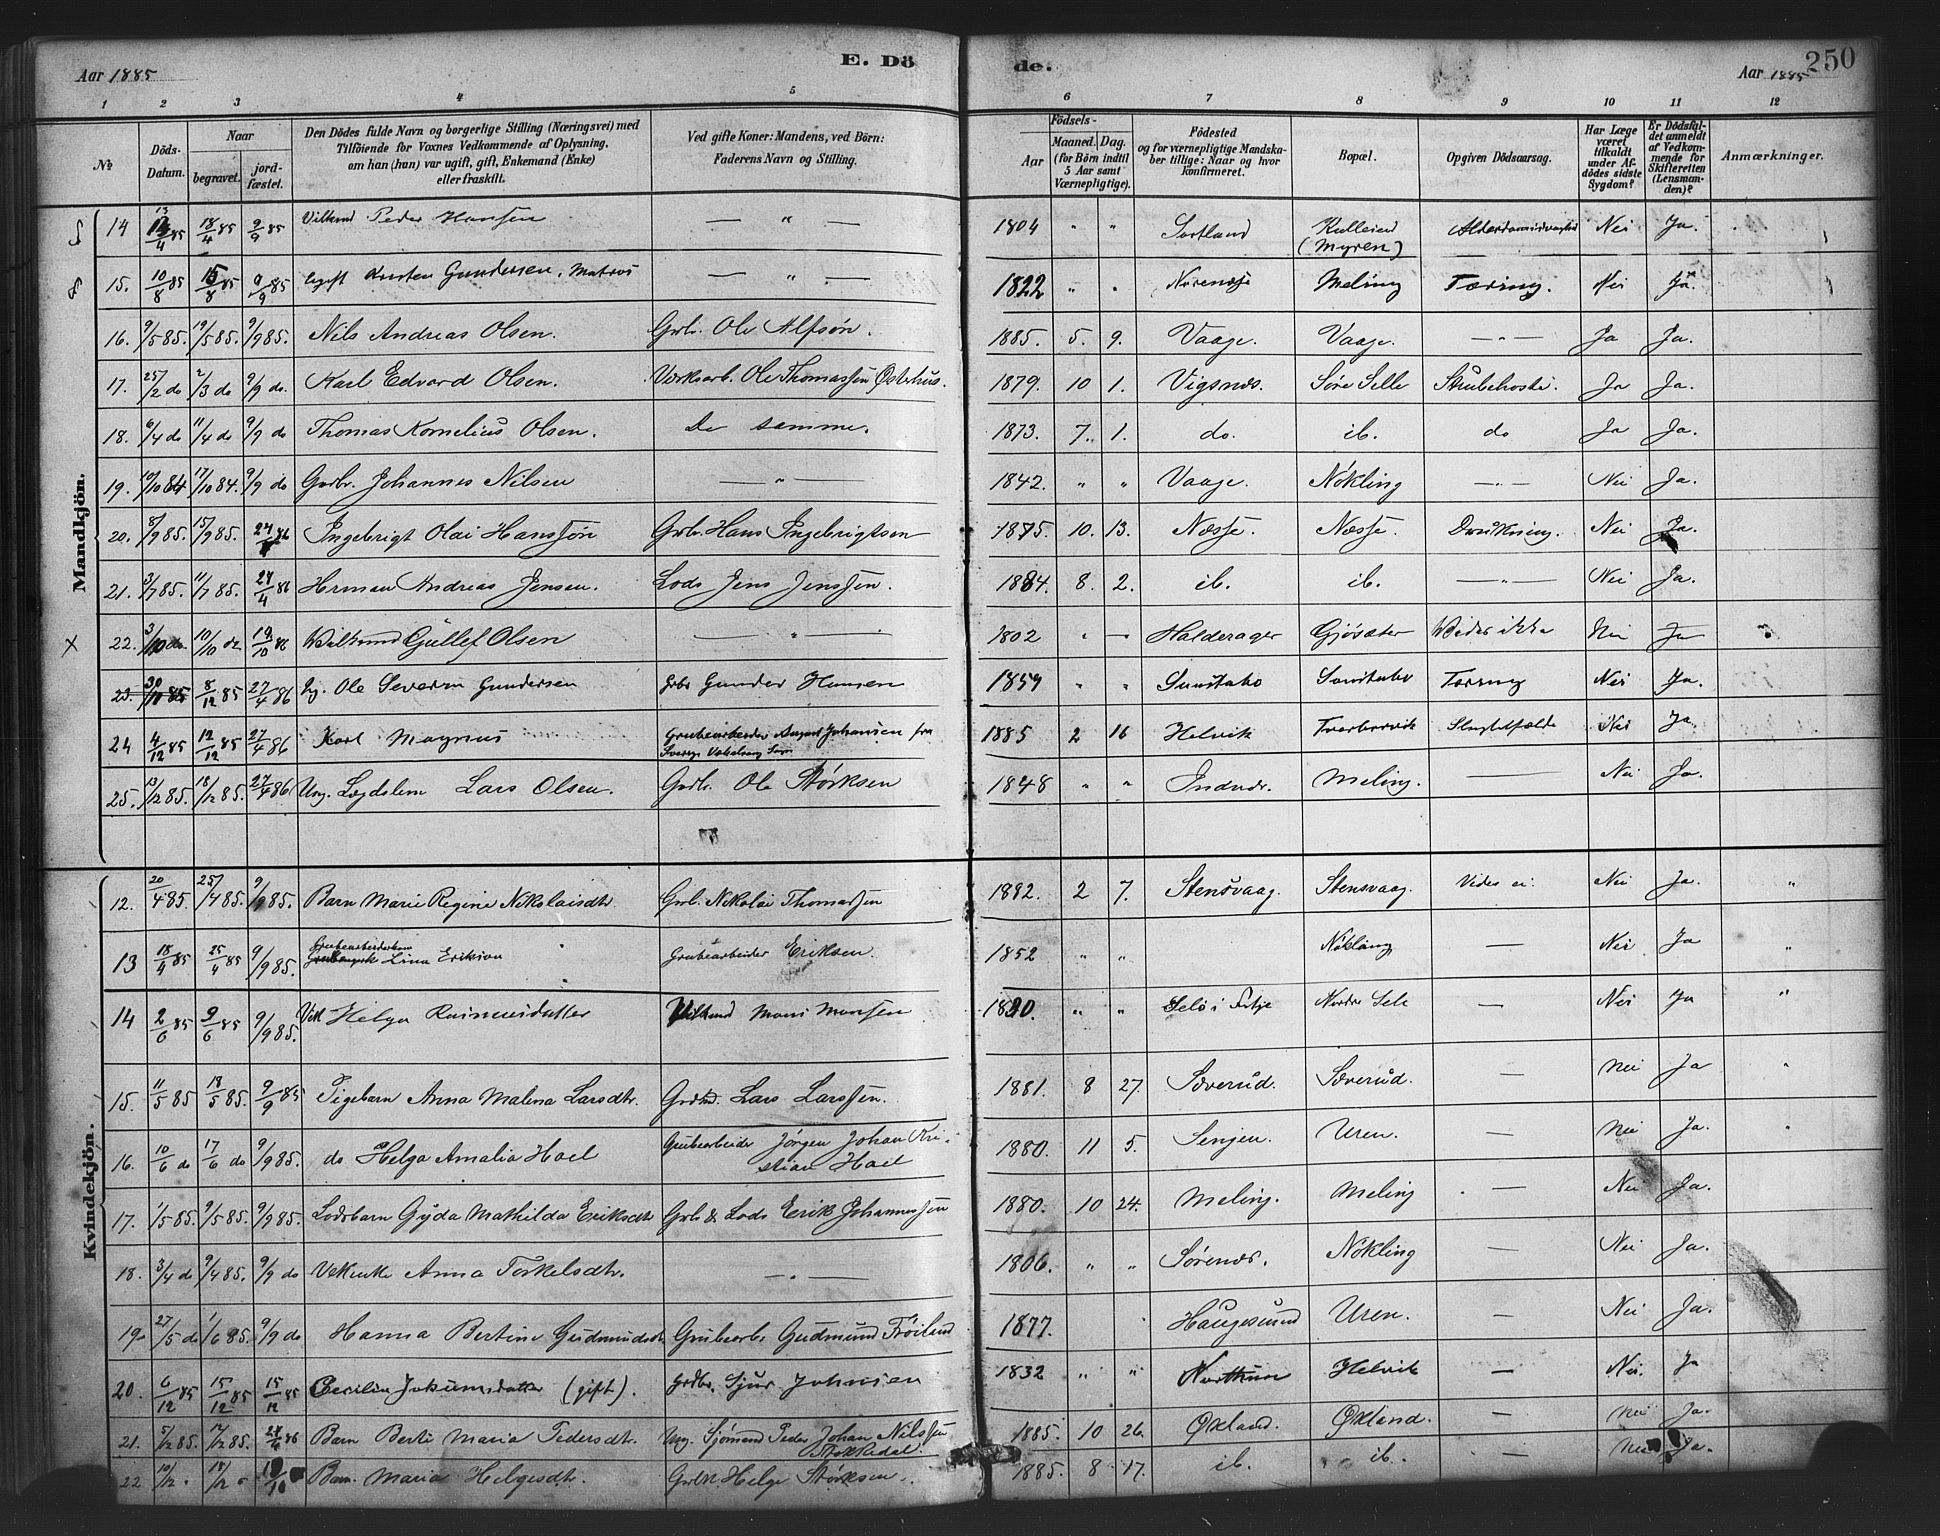 Aar 1885 E. Dö de. Aar 1885 250
1 2 3 4 5 6 7 8 9 10 11 12
№ Döds-Datum. Naar begravet. jord-fæstet. Den Dödes fulde Navn og borgerlige Stilling (Næringsvei) med Tilföiende for Voxnes Vedkommende af Oplysning, om han (han) var ugift, gift, Enkemand (Enke) eller fraskilt. Ved gifte Koner: Mandens, ved Börn: Faderens Navn og Stilling. Födsels- Aar Maaned. Dag. (for Börn indtil 5 Aar samt Værnepligtige). Födested og for værnepligtige Mandskaber tillige: Naar og hvor konfirmeret. Bopæl. Opgiven Dödsaarsag. Har Læge været tilkaldt under Afdödes sidste Sygdom? Er Dödsfaldet anmeldt af Vedkommende for Skifteretten (Lensmanden)? Anmærkninger.
Mandkjön.
14 13/4 85 18/4 85 9/9 85 Vilkmd Peder Hansen — " — 1804 " " Sortland (Myren) Nei Ja.
15. 10/8 85 15/8 85 9/9 85 Gundersen, Matros — " — 1822 " " Meling Tæring. Nei Ja.
16. 9/5 85. 19/5 85. 9/9 85. Nils Andreas Olsen. Grbr. Ole Alfsøn. 1885. 5. 9. Vaage. Vaage. — " — Ja Ja.
17. 25/2 do 2/3 do 9/9 do. Karl Edvard Olsen. Værksarb. Ole Thomassen Østerhus. 1879. 10 1. Vigsnæs. Søre Selle Strubehoste. Ja Ja.
18. 6/4 do 11/4 do 9/9 do Thomas Kornelius Olsen. De samme. 1873. 7. 1. do. ib. do Ja Ja.
19. 10/10 84 17/10 84. 9/9 do Gmbr. Johannes Nilsen — " — 1842. " " Vaage. Nøkling — " — Nei Ja.
20. 8/9 85. 15/9 85. 27/4 86 Ingebrigt Olai Hanssøn Grbr. Hans Ingebrigtsen 1875. 10. 13. Næsse. Næsse. Drukning. Nei Ja.
21. 3/7 85. 11/7 85. 27/4 86 Herman Andreas Jensen. Lods Jens Jenssen. 1884. 8. 2. ib. ib. — " — Nei Ja.
22. 3/10 do. 10/10 do 19/10 86 Vilkmd Gullef Olsen — " — 1802 " — Halderager Gjøsæter Vides ikke Nei Ja
23. 30/11 85 8/12 85 27/4 86 Ug. Ole Severin Gundersen Grbr Gunder Hansen 1859 " " Sundtabø Tæring Nei Ja.
24 4/12 85 12/12 85 27/4 86 Karl Magnus Grubearbeider August Johansen fra Sverige 1885 2 16 Helvik Nei Ja
25. 13/12 85. 18/12 85. 27/4 86 Ung. Lægdslem Lars Olsen. Grdbr. Ole Størksen 1848 " " Indndr. Meling. — Nei Ja.
Kvindekjön.
12. 20/4 85. 25/4 85. 9/9 85. Barn Marie Regine Nikolaisdtr. Grbr. Nikolai Thomassen 1882. 2 7. Stensvaag. Stensvaag. Vides ei. Nei Ja. "
13 18/4 85 25/4 85 9/9 85. Grubearbeiderkone Lina Eriksen Grubearbeider Eriksen. 1852 " " Nøkling — Nei Ja "
14 2/6 85 9/6 85 9/9 85. Vilk Helga Rasmusdatter Vilkmd Mons Monsen 1820. " " Selø i Fitje Nordre Sele — Nei Ja "
15. 11/5 85 18/5 85. 9/9 85 Pigebarn Anna Malena Larsdtr. Grdbr. Lars Larssen. 1881. 8 27. Sæverud. Sæverud. — Nei Ja "
16. 10/6 do 17/6 do 9/9 85. do Helga Amalia Hoel Grubearbeider Jørgen Johan Kristian Hoel 1880. 11 5. Senjen. Uren. — Nei Ja. "
17. 1/5 85. 9/5 85. 9/9 85. Lodsbarn Gyda Mathilda Eriksdtr Grbr & Lods Erik Johannessen 1880. 10 24. Meling. Meling — Nei Ja.
18. 3/4 do 9/4 85. 9/9 do Anna Torkelsdtr. — " — 1806. " " Sørenæs. Nøkling — Nei Ja.
19. 27/5 do 1/6 85. 9/9 do Hanna Bertine Gudmundsdtr Grubearbr Gudmund Frøiland 1877. " Haugesund Uren. — Nei Ja.
20. 6/12 85 15/12 85 15/12 85 Cecilia Jokumsdatter (gift). Grdbr. Sjur Johnsen 1832 " " Helvik — Nei. Ja
21. 5/12 85. 12/12 85. 27/4 86 Barn Berte Maria Pedersdtr. Ung. Sjømand Peder Johan Nilssen Stokkedal. 1885. 10 26. Øxland. Øxland. — Nei Ja.
22 10/12 " 15/12 " Barn. Maria Helgesdtr. Grdbr Helge Størksen. 1885. 8 17. ib. ib. — Nei Ja.